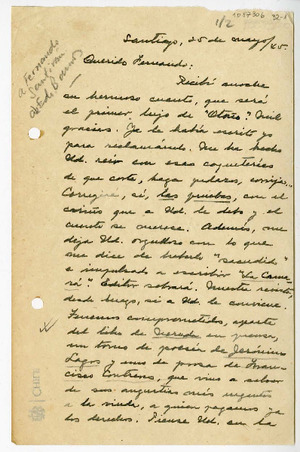 1/2
1057306
Santiago, 25 de mayo/45.
a Fernando
Santiván
Querido Fernando:
Recibí anoche
su hermoso cuento, que será
el primer hijo de "Otoño". Mil
gracias. Ya le había escrito yo
para reclamándolo. Me ha hecho
Ud. reir con esas coqueterías
de que corte, haga pedazos, corrija.
Corregiré, sí, las pruebas, con el
cariño que a Ud. le debo y el
cuento se merece. Además, me
deja Ud. orgulloso con lo que
me dice de haberlo "sacudido"
e impulsado a escribir
Editor sobrará. Nuestra revista,
desde luego, si a Ud. le conviene.
Tenemos comprometidos, aparte
del libro de en prensa,
un tomo de poesía de Jerónimo
Lagos y uno de prosa de Fran-
cisco Contreras, que vino a salvar
de sus angustias más urgentes
a la viuda, a quien pagamos ya
los derechos. Piense Ud. en la
CHILE